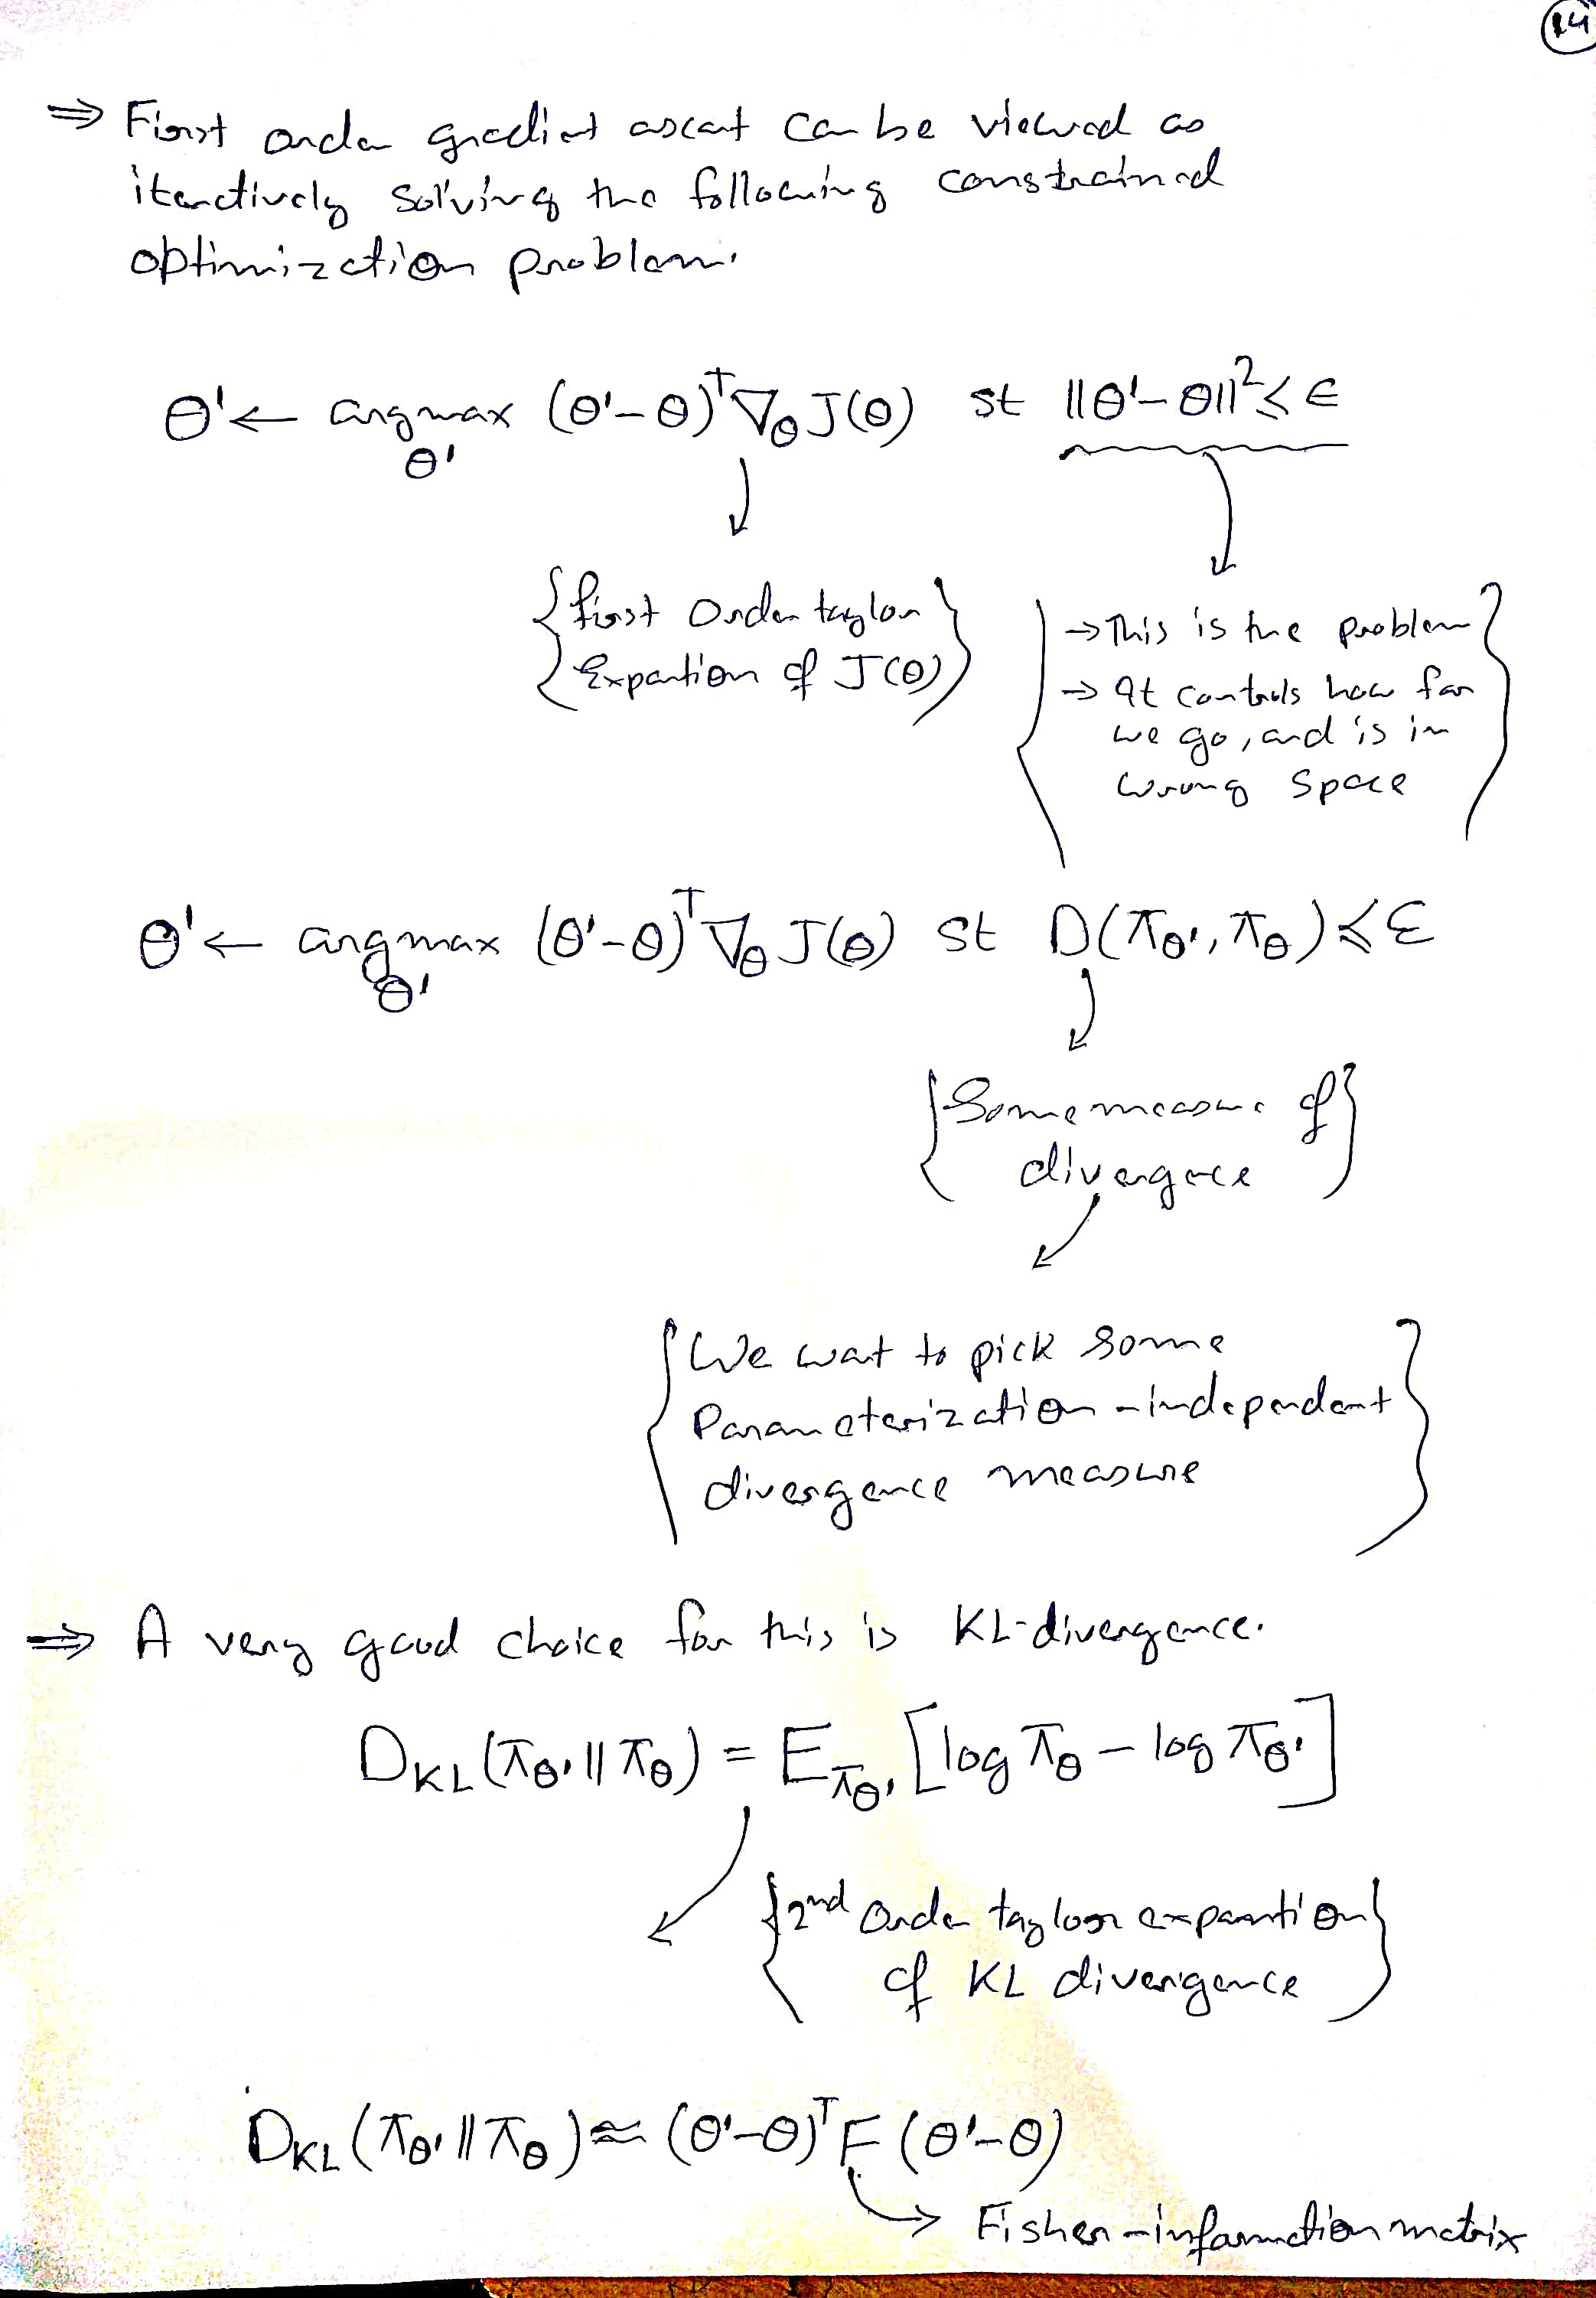 14
⇒ First order gradient ascent can be viewed as
iteratively solving the following constrained
optimization problem.
θ' ← argmax (θ'-θ)ᵀ ∇_θ J(θ) st ||θ'-θ||² ≤ ϵ
θ'
{first order taylor
Expantion of J(θ)}
{→ This is the problem
→ It controls how far
we go, and is in
wrong space}
θ' ← argmax (θ'-θ)ᵀ ∇_θ J(θ) st D(π_θ', π_θ) ≤ ε
θ'
{Some measure of
divergence}
{We want to pick some
Parameterization-independent
divergence measure}
⇒ A very good choice for this is KL-divergence.
D_KL(π_θ' || π_θ) = E_π_θ' [log π_θ - log π_θ']
{2nd order taylor expantion
of KL divergence}
D_KL(π_θ' || π_θ) ≈ (θ'-θ)ᵀ F (θ'-θ)
→ Fisher-information matrix